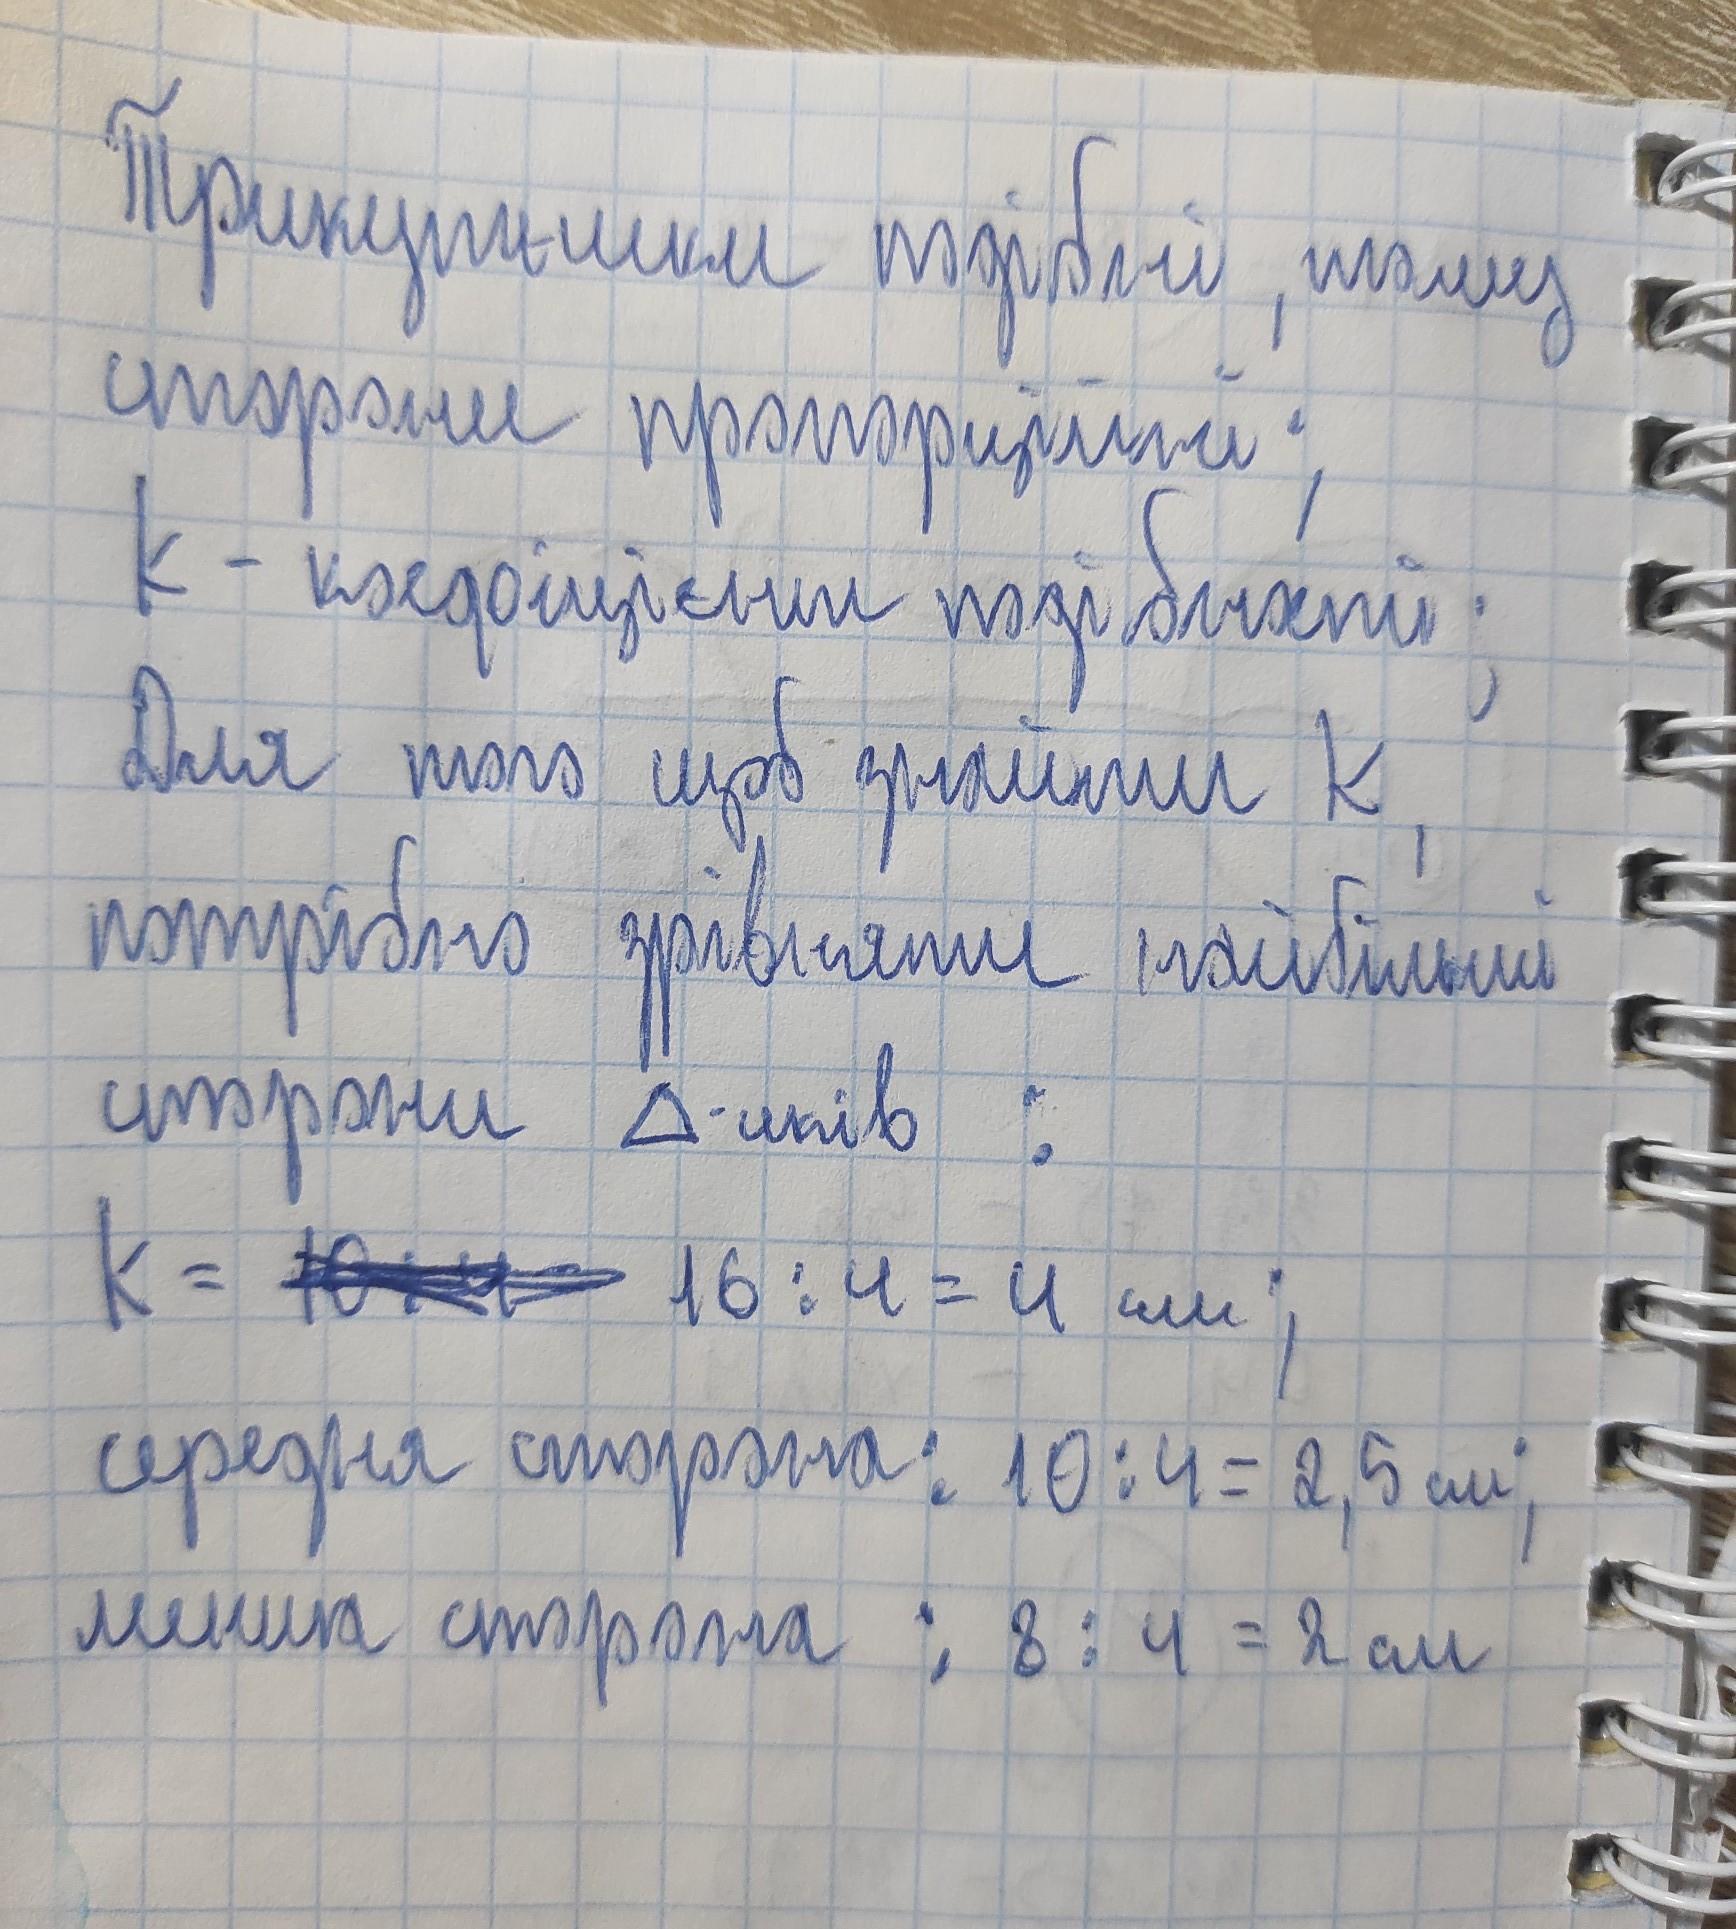 Трикутники подібні, тому
сторони пропорційні;
k - коефіцієнт подібності;
Для того щоб знайти k,
потрібно зрівняти найбільші
сторони Δ-иків :
k = 16 : 4 = 4 см;
середня сторона: 10 : 4 = 2,5 см;
менша сторона : 8 : 4 = 2 см